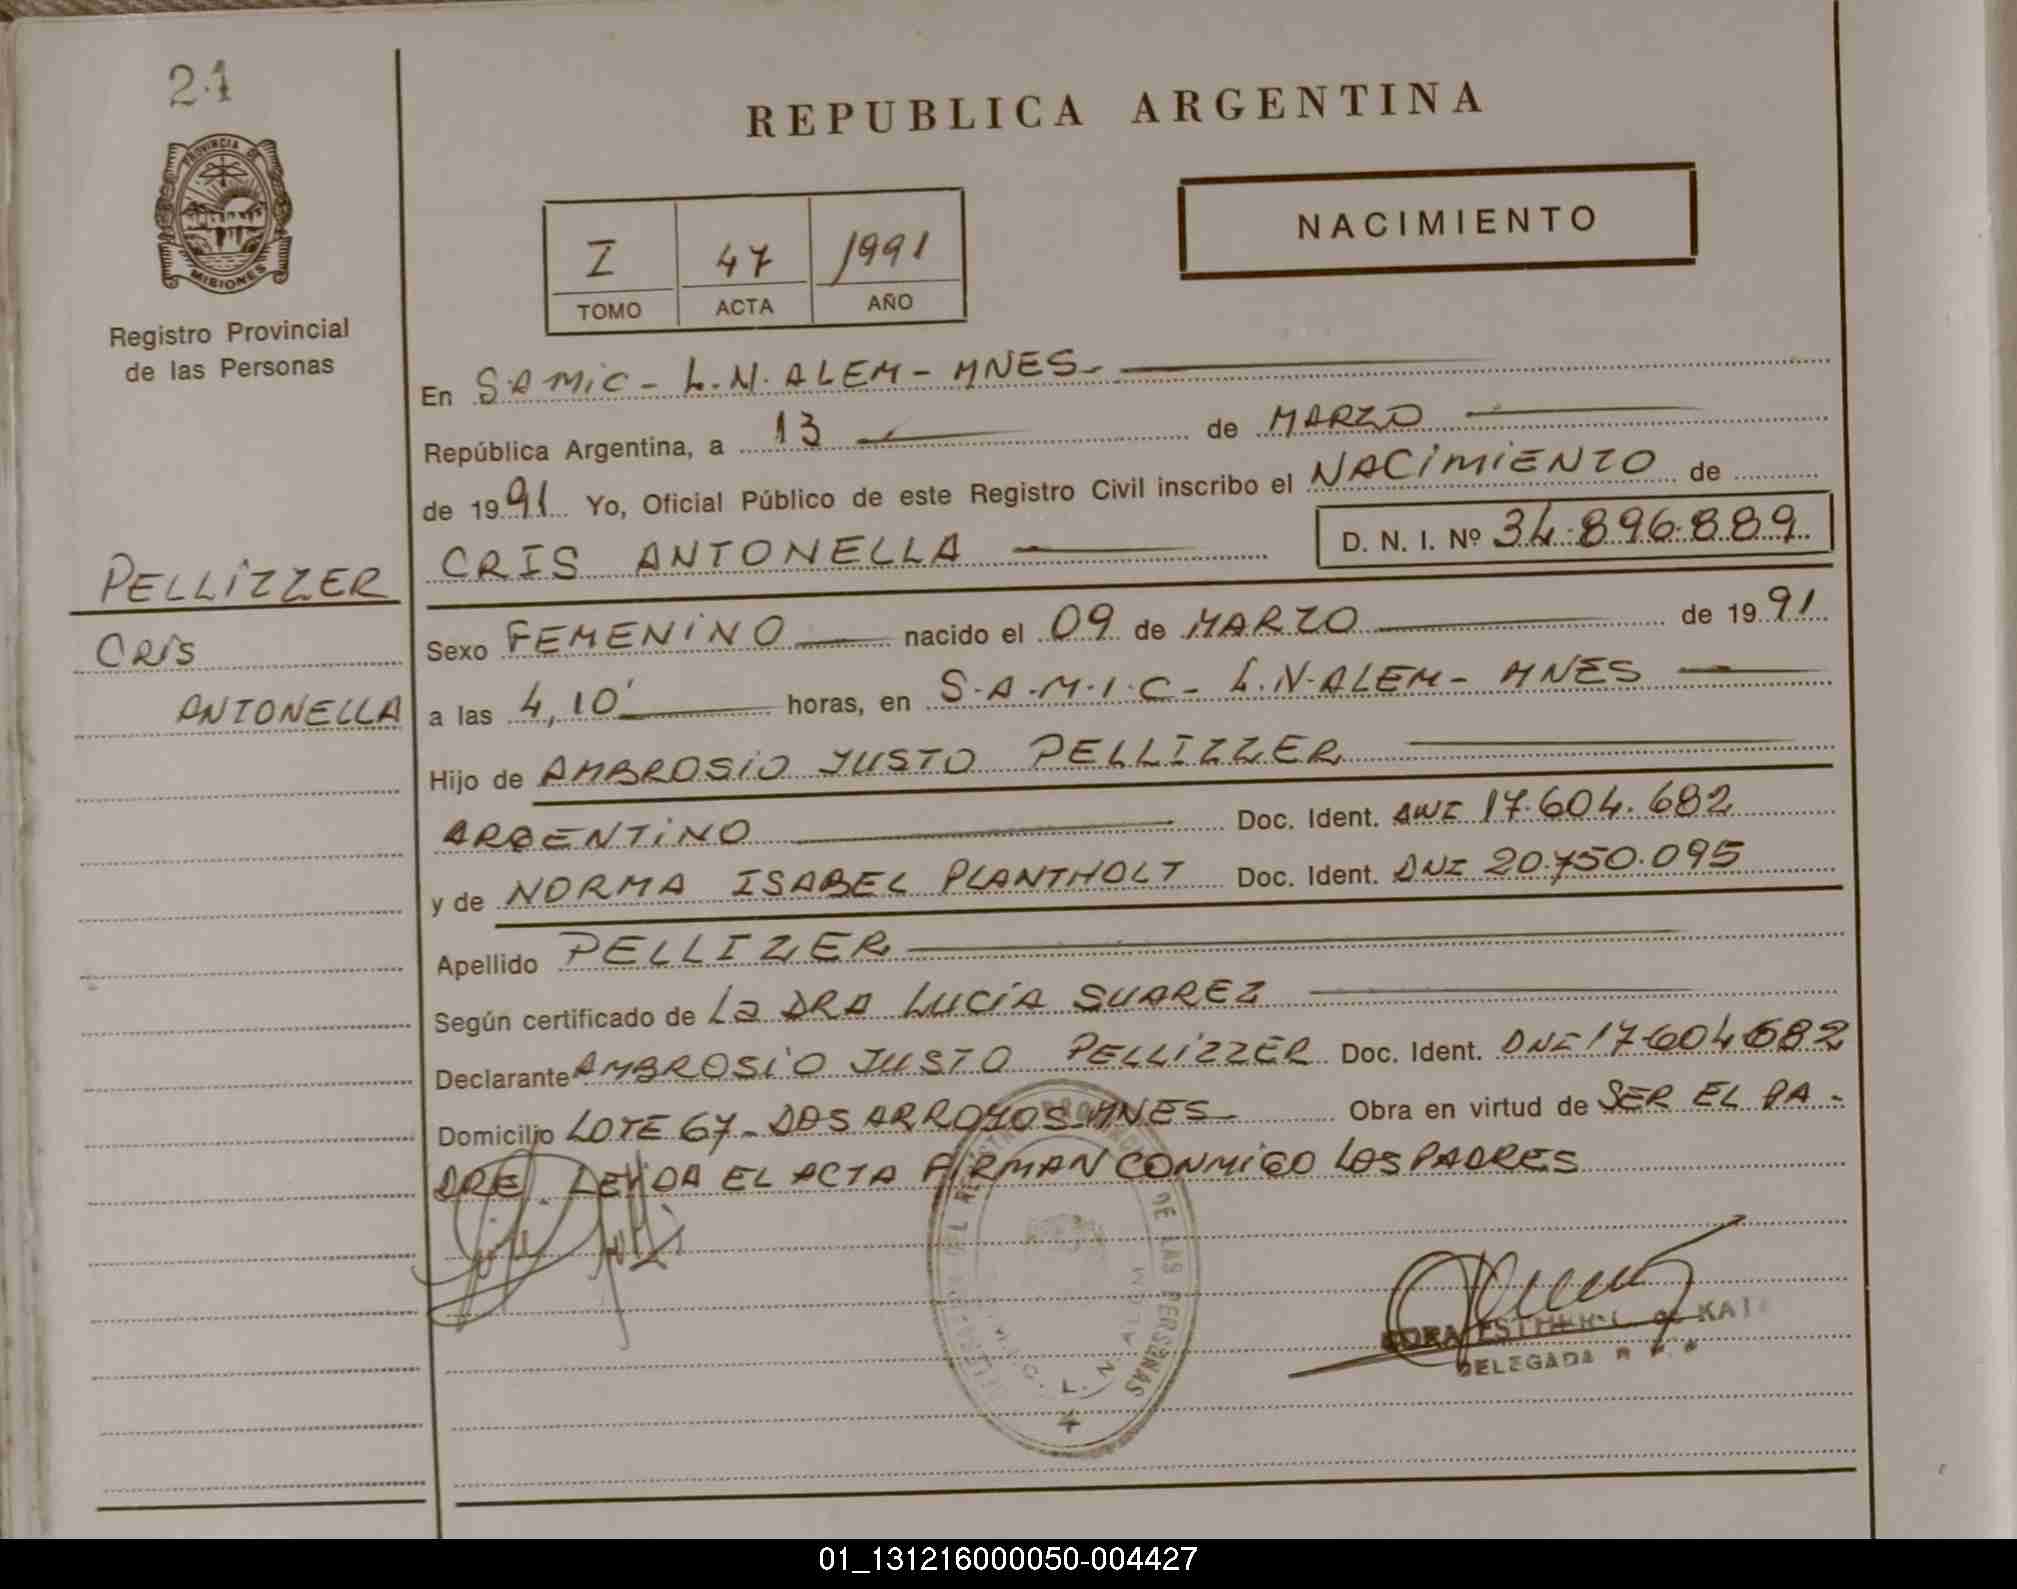 24
REPUBLICA ARGENTINA
PROVINCIA DE
MISIONES
Registro Provincial
de las Personas
I 47 1991
TOMO ACTA AÑO
NACIMIENTO
En S.A.M.I.C - L.N. ALEM - MNES -
República Argentina, a 13 de MARZO
de 1991 Yo, Oficial Público de este Registro Civil inscribo el NACIMIENTO de
CRIS ANTONELLA D. N. I. Nº 34.896.889.
PELLIZZER
CRIS
ANTONELLA
Sexo FEMENINO nacido el 09 de MARZO de 1991
a las 4,10' horas, en S.A.M.I.C - L.N. ALEM - MNES
Hijo de AMBROSIO JUSTO PELLIZZER
ARGENTINO Doc. Ident. DNI 17.604.682
y de NORMA ISABEL PLANTHOLT Doc. Ident. DNI 20.750.095
Apellido PELLIZER
Según certificado de La DRA LUCIA SUAREZ
Declarante AMBROSIO JUSTO PELLIZZER Doc. Ident. DNI 17.604.682
Domicilio LOTE 67 - DOS ARROYOS MNES Obra en virtud de SER EL PA -
DRE. LEYDA EL ACTA FIRMAN CONMIGO LOS PADRES
DE LAS PERSONAS
L. N. ALEM
ESTHER
DELEGADA
01_131216000050-004427